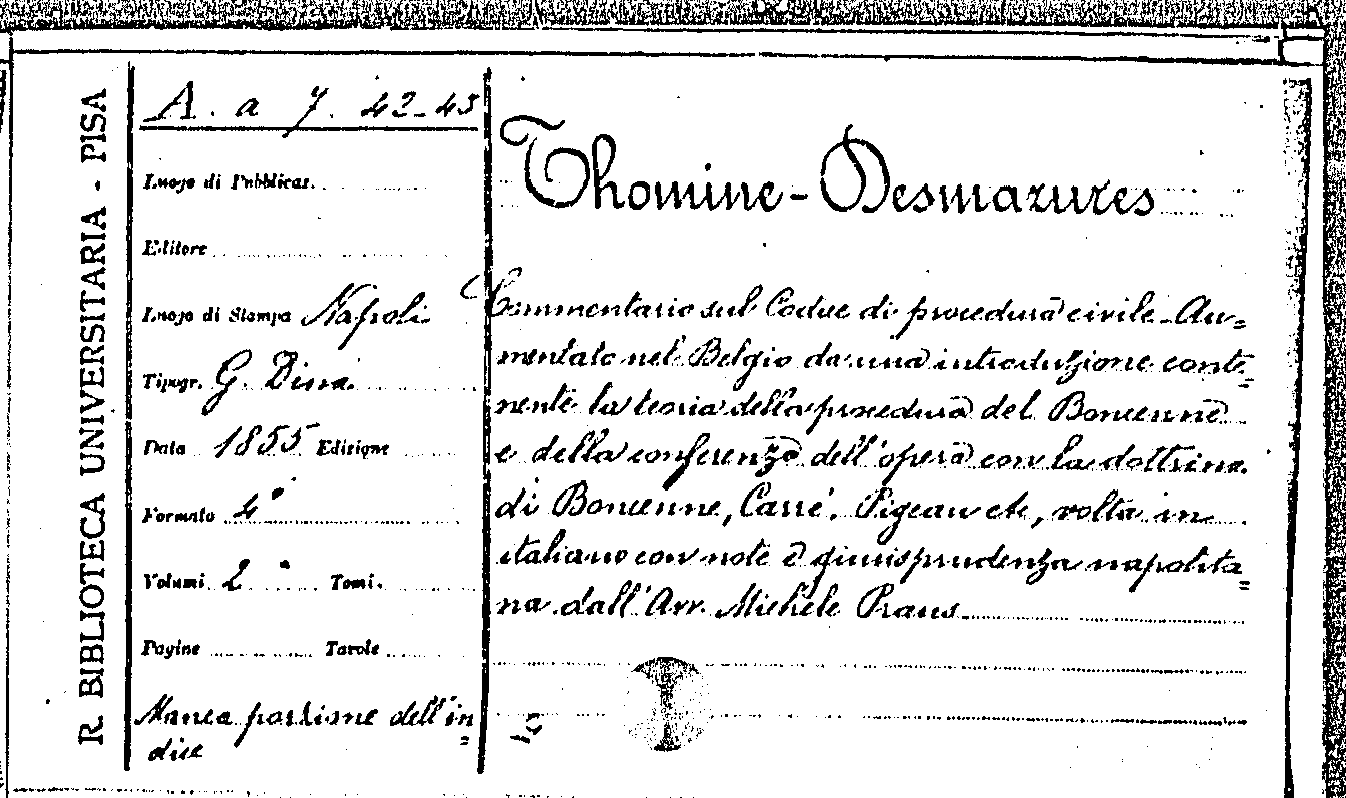 R. BIBLIOTECA UNIVERSITARIA - PISA
A. a 7. 42-43
Luogo di Pubblicaz.
Editore
Luogo di Stampa Napoli
Tipogr. G. Dura
Data 1855 Edizione
Formato 4°
Volumi 2 Tomi
Pagine Tavole
Manca porzione dell'in=
dice
Thomine-Desmazures
Commentario sul Codice di procedura civile. Au=
mentato nel Belgio da una introduzione conte=
nente la teoria della procedura del Boncenne
e della conferenza dell'opera con la dottrina
di Boncenne, Carré, Pigeau etc, volta in
italiano con note e giurisprudenza napolita=
na dall'Avv. Michele